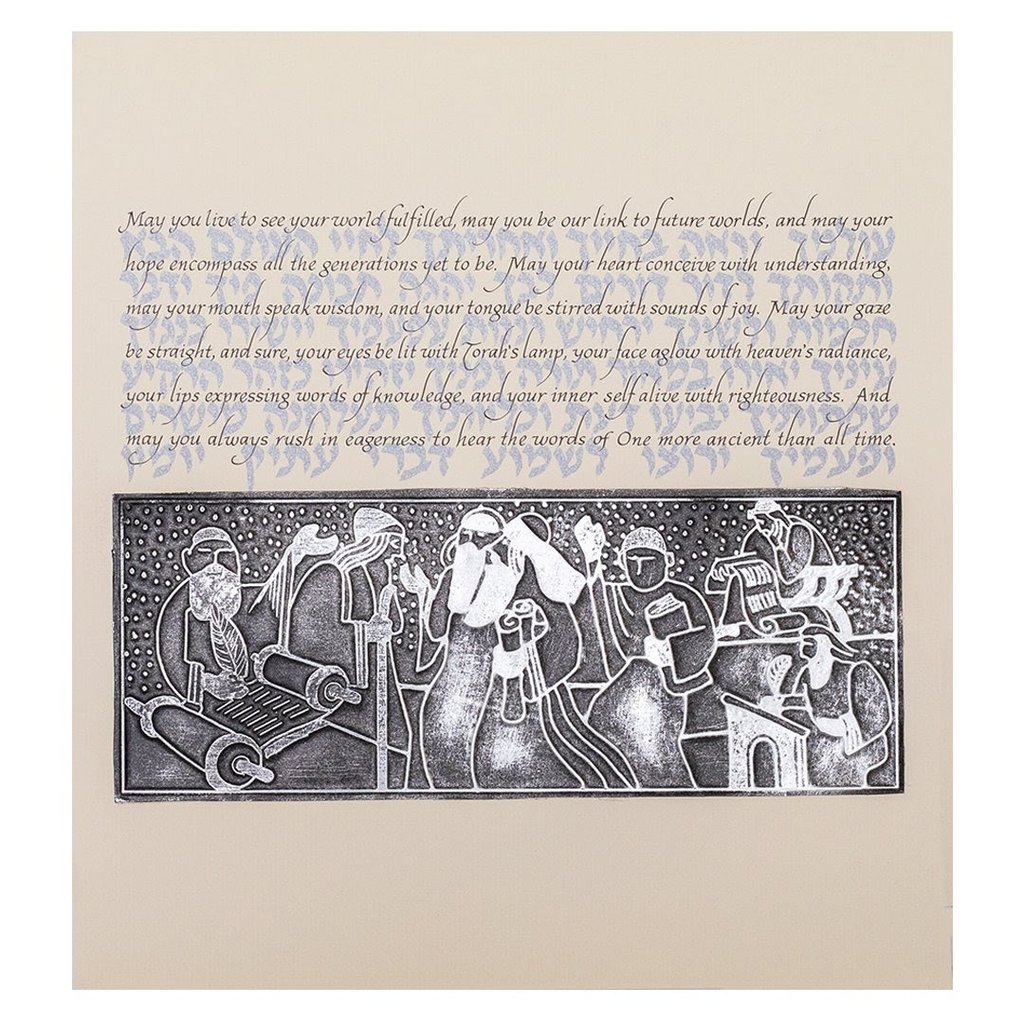 May you live to see your world fulfilled, may you be our link to future worlds, and may your
עולמך תראה בחייך ואחריתך לחיי העולם הבא
hope encompass all the generations yet to be. May your heart conceive with understanding,
ותקותך לדור דורים לבך יהגה תבונה פיך ידבר
may your mouth speak wisdom, and your tongue be stirred with sounds of joy. May your gaze
חכמות ולשונך ירחיש
be straight, and sure, your eyes be lit with Torah's lamp, your face aglow with heaven's radiance,
עיניך יאירו במאור תורה ופניך יזהירו כזוהר הרקיע
your lips expressing words of knowledge, and your inner self alive with righteousness. And
יביעו דעת מישרים
may you always rush in eagerness to hear the words of One more ancient than all time.
ופעמיך ירוצו לשמוע דברי עתיק יומין